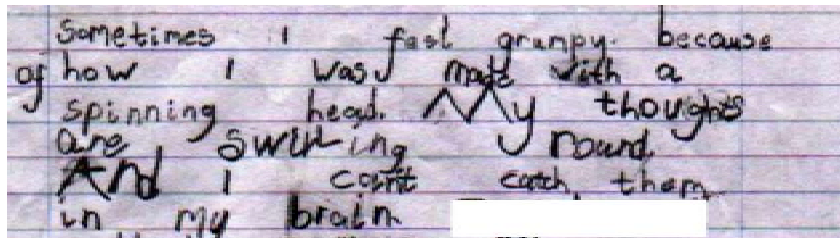 Sometimes I feel grumpy. because
of how I was made with a
spinning head. My thoughts
are swirling round
And I cannt catch them
in my brain.